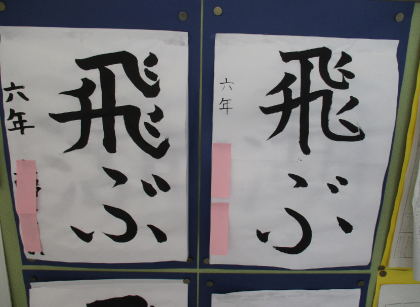 飛ぶ
六年
飛ぶ
六年